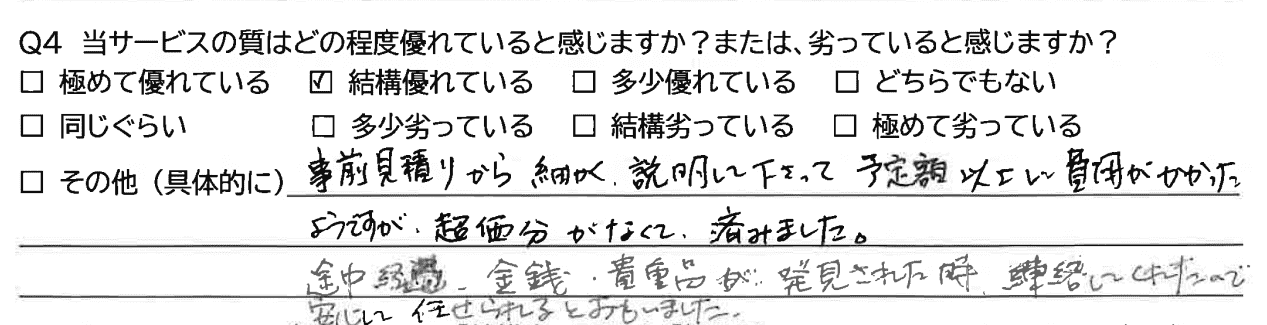 Q4 当サービスの質はどの程度優れていると感じますか？または、劣っていると感じますか？
□ 極めて優れている ☑ 結構優れている □ 多少優れている □ どちらでもない
□ 同じぐらい □ 多少劣っている □ 結構劣っている □ 極めて劣っている
□ その他（具体的に） 事前見積りから細かく、説明して下さって 予定額以上に費用がかかった
ようですが、超価分がなくて、済みました。
途中経過、金銭・貴重品が発見された時、連絡してくれたので
安心して任せられるとおもいました。